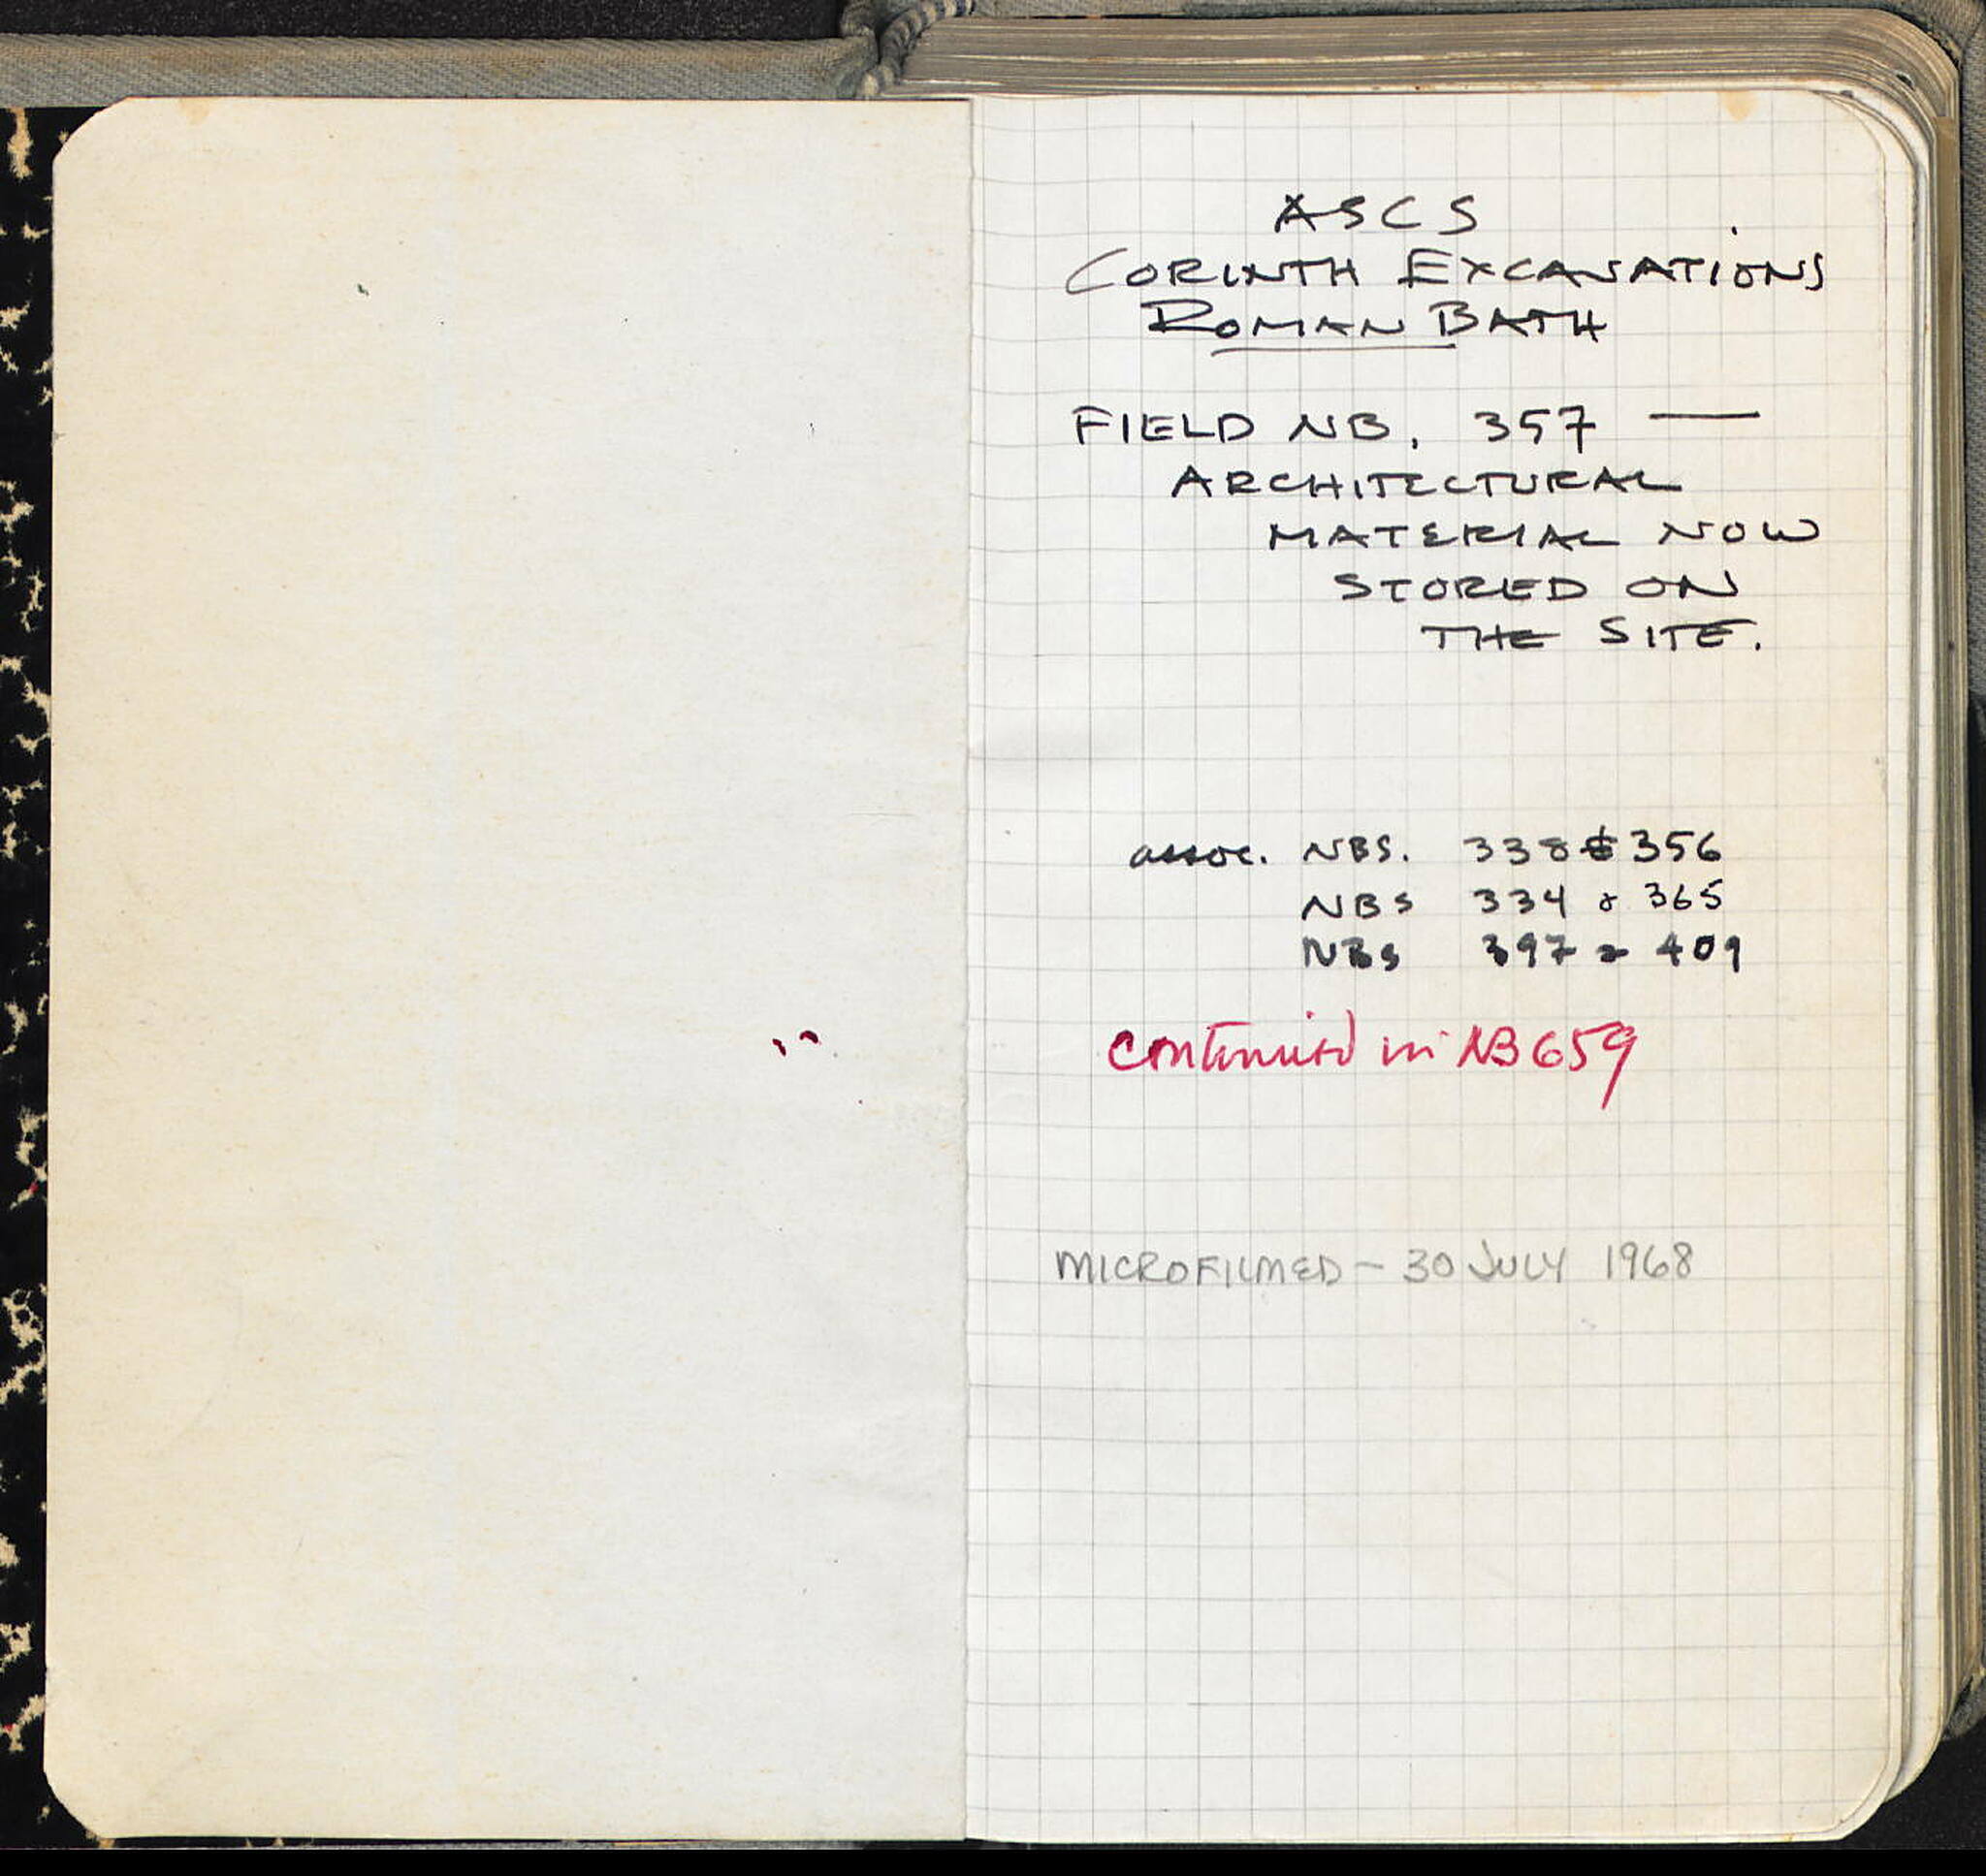 ASCS
CORINTH EXCAVATIONS
ROMAN BATH
FIELD NB. 357 —
ARCHITECTURAL
MATERIAL NOW
STORED ON
THE SITE.
assoc. NBS. 338 & 356
NBS 334 & 365
NBS 397 & 409
continued in NB 659
MICROFILMED - 30 JULY 1968